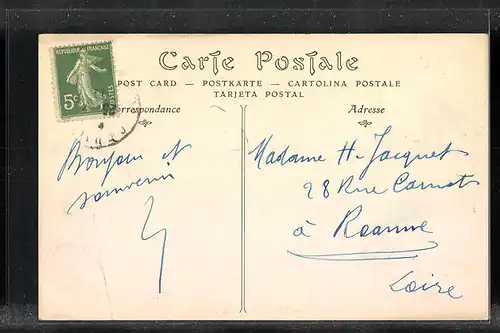 Carte Postale
POST CARD — POSTKARTE — CARTOLINA POSTALE
TARJETA POSTAL
REPUBLIQUE FRANÇAISE
5c
POSTES
Correspondance
Adresse
Bonjour et
souvenir
Madame H. Jacquet
28 Rue Carnot
à Roanne
Loire